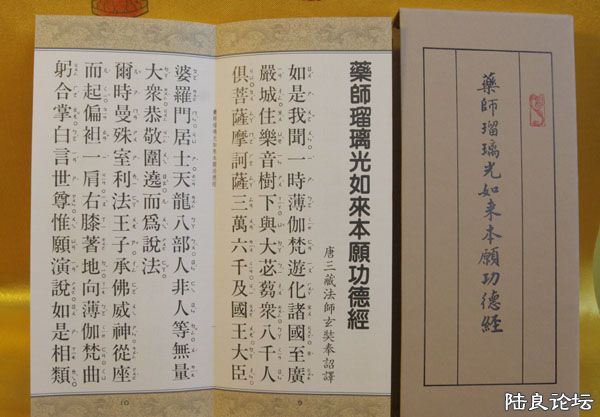 藥師瑠璃光如来本願功德經
藥師瑠璃光如來本願功德經
唐三藏法師玄奘奉詔譯
如是我聞一時薄伽梵遊化諸國至廣
嚴城住樂音樹下與大苾芻衆八千人
俱菩薩摩訶薩三萬六千及國王大臣
9
藥師瑠璃光如來本願功德經
婆羅門居士天龍八部人非人等無量
大衆恭敬圍遶而爲說法
爾時曼殊室利法王子承佛威神從座
而起偏袒一肩右膝著地向薄伽梵曲
躬合掌白言世尊惟願演說如是相類
10
陆良论坛